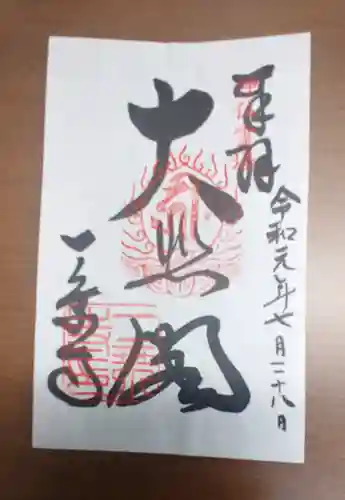 奉拝
令和元年七月二十八日
大悲閣
一乗寺